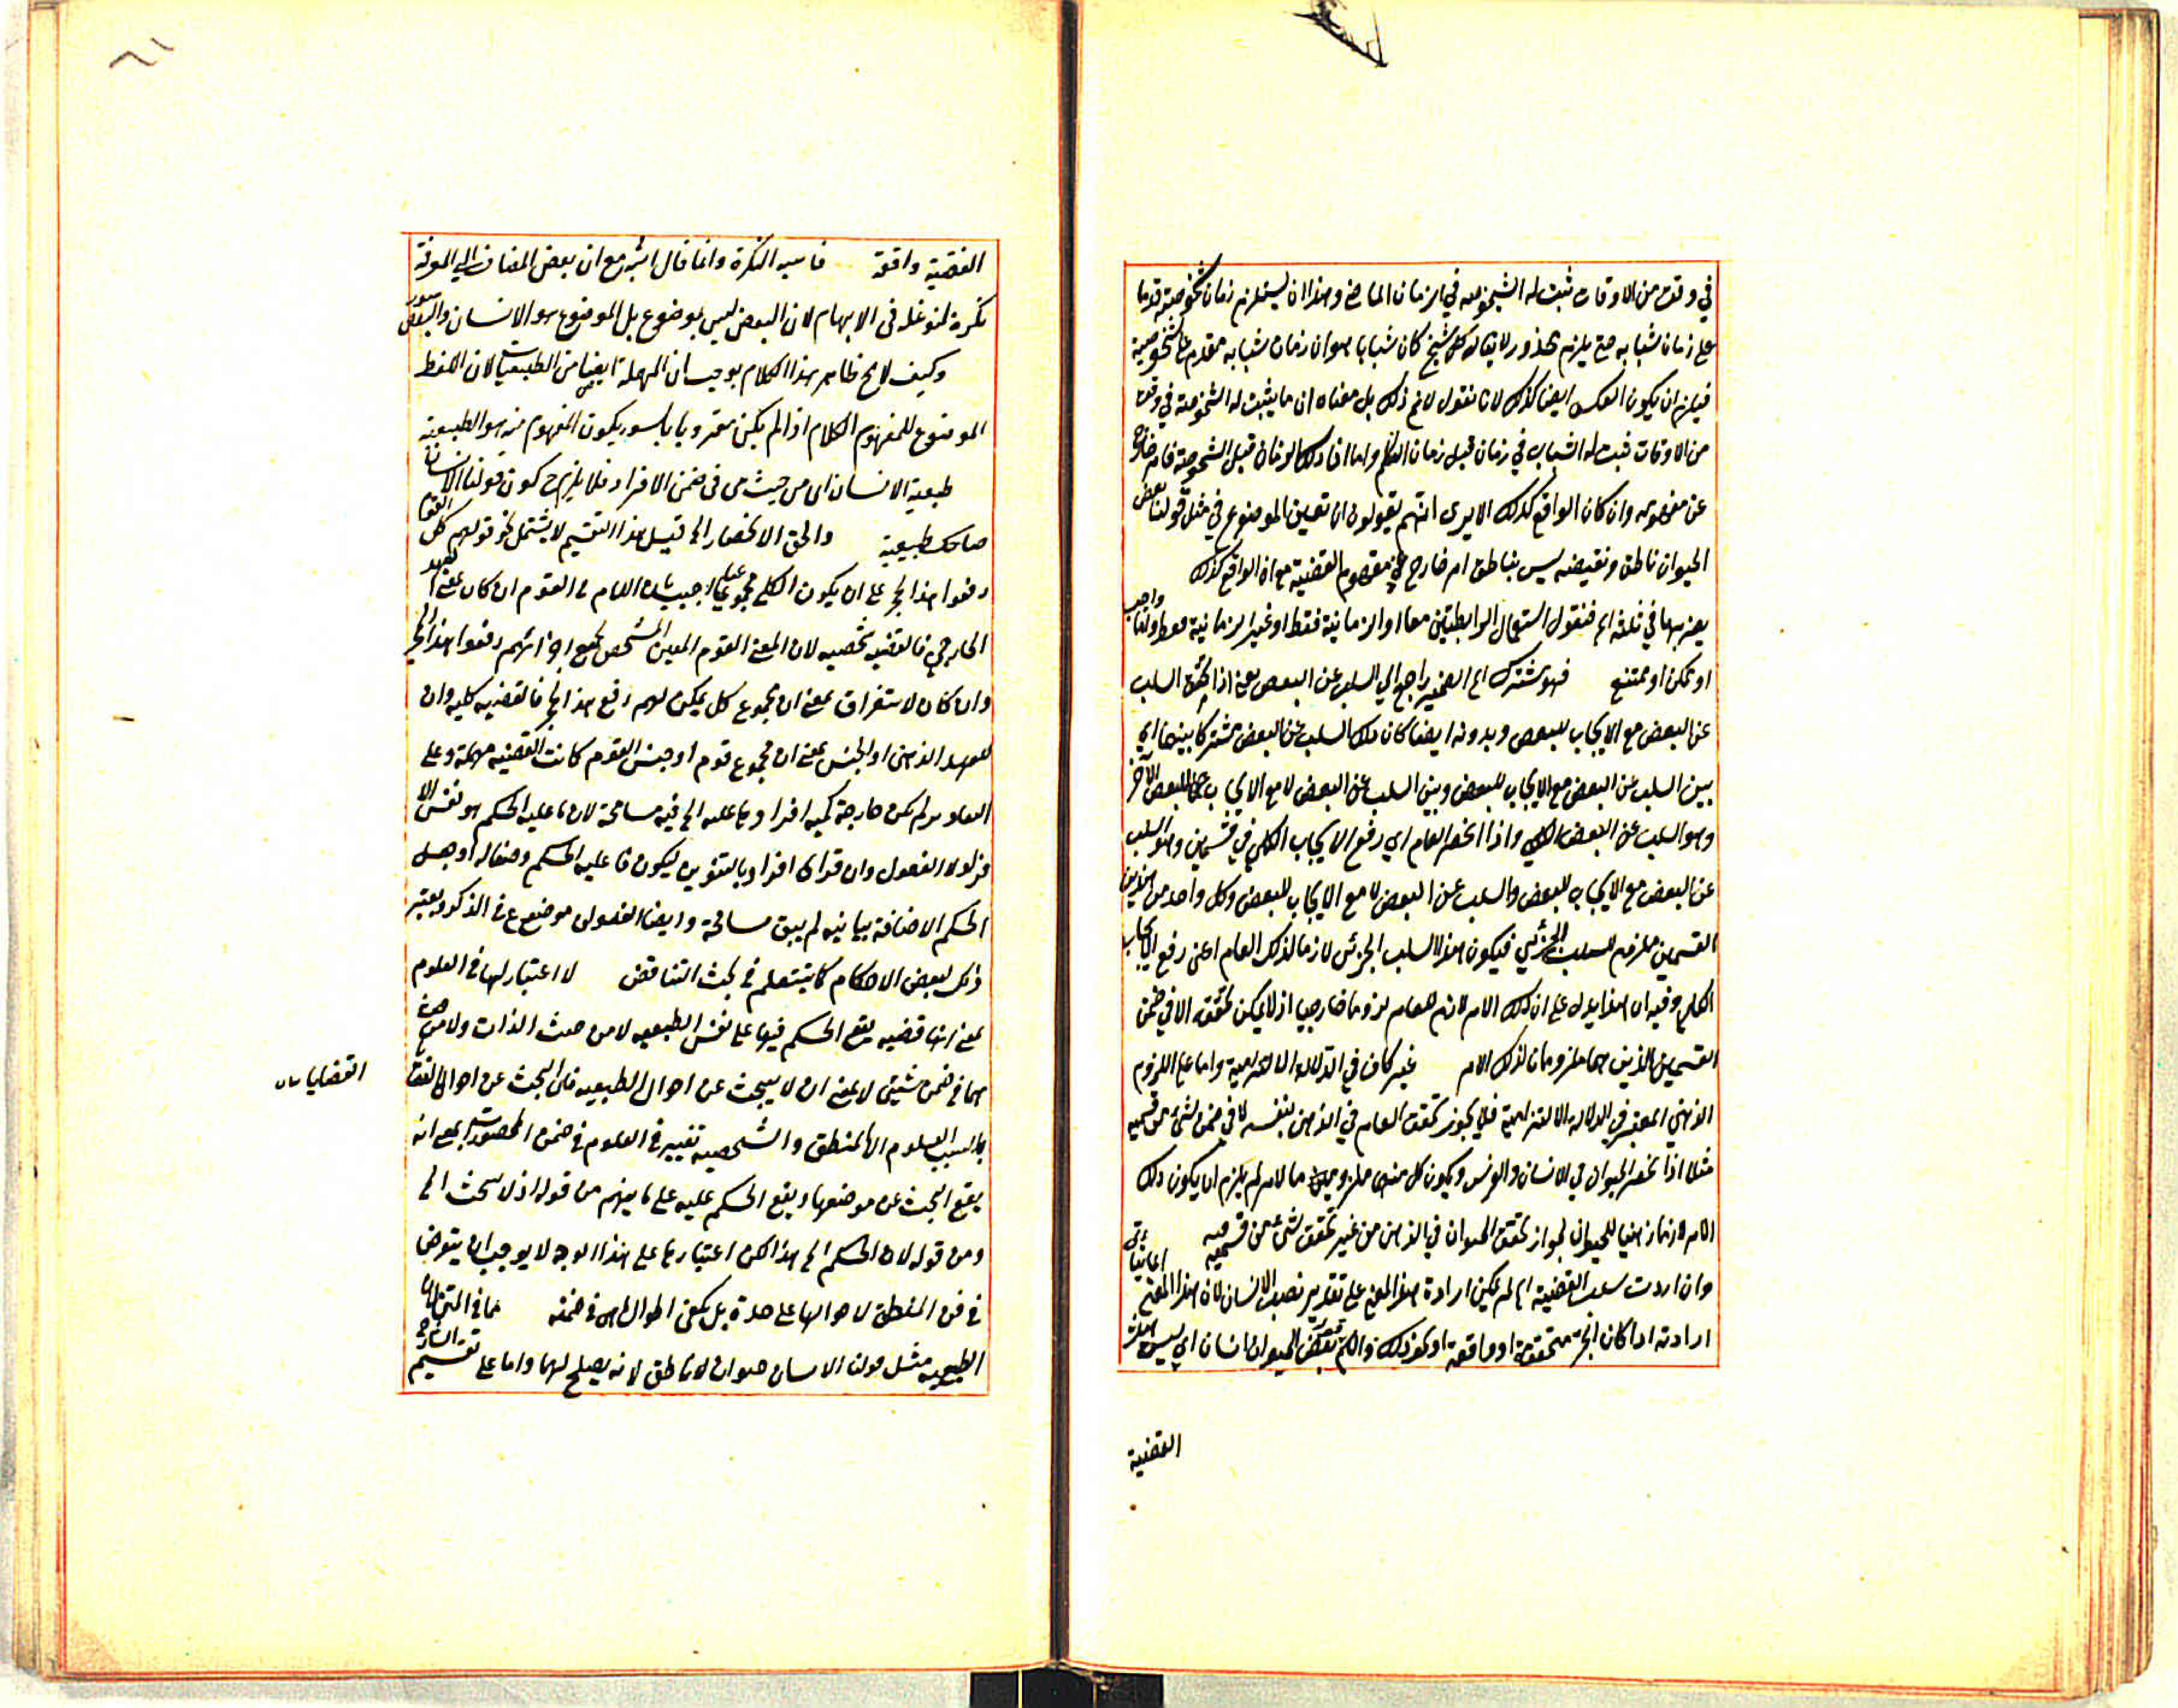 في وقت من الاوقات ثبت له الشيخوخية في الزمان الماضي وهذا لا يستلزم زمان شيخوخيته قدما
على زمان شبابه حتى يلزم محذور لا يقال كل شيخ كان شابا هو ان زمان شبابه مقدم على شيخوخية
فيلزم ان يكون العكس ايضا كذلك لانا نقول لا نم ذلك بل معناه ان ما يثبت له الشيخوخية في وقت
من الاوقات ثبت له الشباب في زمان قبل زمان التكلم واما ان ذلك الزمان قبل الشيخوخية فامر خارج
عن مفهومه وان كان الواقع كذلك الا يرى انهم يقولون ان تعيين الموضوع في مثل قولنا بعض
الحيوان ناطق ونقيضه ليس بناطق امر خارج عن مفهوم القضية مع ان الواقع كذلك
في ثلثة اه فنقول استعمال الرابطتين معا او الزمانية فقط او غير الزمانية فقط واجب
او ممكن او ممتنع فهو مشترك اه الضمير راجع الى السلب عن البعض يعني اذا تحقق السلب
عن البعض مع الايجاب للبعض وبدونه ايضا كان ذلك السلب عن البعض مشتركا بينهما اي
بين السلب عن البعض مع الايجاب للبعض وبين السلب عن البعض لا مع الايجاب للبعض الآخر
وهو السلب عن البعض الكلي واذا انحصر العام اي رفع الايجاب الكلي في قسمين وهو السلب
عن البعض مع الايجاب للبعض والسلب عن البعض لا مع الايجاب للبعض وكل واحد من هذين
القسمين ملزوم للسلب الجزئي فيكون هذا السلب الجزئي لازما لذلك العام اعني رفع الايجاب
الكلي وفيه ان هذا يدل على ان ذلك الامر لازم للعام لزوما خارجيا اذ لا يمكن تحققه الا في ضمن
القسمين الذين هما ملزومان لذلك الامر غير كاف في الدلالة الالتزامية واما على اللزوم
الذهني المعتبر في الدلالة الالتزامية فلا يجوز تحقق العام في الذهن بنفسه لا في ضمن شئ من قسميه
مثلا اذا انحصر الحيوان في الانسان والفرس ويكون كل منهما ملزومين لامر لم يلزم ان يكون ذلك
الامر لازما ذهنيا للحيوان لجواز تحقق الحيوان في الذهن من غير تحقق شئ من قسميه
وان اردت سلب القضية اه لم يمكن ارادة هذا المعنى على تقدير نصب الانسان لان هذا المعنى
ارادته اذا كان الخبر متحققة او واقعة او نحو ذلك والكلام بعض الحيوان انسان اي ليس هذه
القضية
القضية واقعة فاشبه النكرة وانما قال اشبه مع ان بعض المضاف الى المعرفة
نكرة لتوغله في الابهام لان البعض ليس بموضوع بل الموضوع هو الانسان والبعض سور
وكيف لا نح ظاهر هذا الكلام يوجب ان المهملة ايضا من الطبيعيات لان اللفظ
الموضوع للمفهوم الكلام اذا لم يكن مقرونا بالسور يكون المفهوم منه هو الطبيعية
طبيعية الانسان اي من حيث هي في ضمن الافراد فلا يلزم ح كون قولنا الانسان
ضاحك طبيعية والحق الانحصار اه قيل هذا التقسيم لا يشتمل نحو قولهم كل القوم
رفعوا هذا الحجر على ان يكون الكلي مجموعيا اجيب بان اللام في القوم ان كان للعهد
الخارجي فالقضية شخصيه لان المعنى القوم المعين المشخص بجميع اجزائهم رفعوا هذا الحجر
وان كان لاستغراق بمعنى ان مجموع كل يمكن لهم رفع هذا الحجر فالقضيه كليه وان
للعهد الذهني او الجنس بمعنى ان مجموع قوم او جنس القوم كانت القضيه مهملة وعلى
التقادير لم يكن خارجة كمية افراد ما عليه اه فيه مسامحة لان ما عليه الحكم هو نفس الا
فراد لا المفصول وان قرأ افراد بالتنوين ليكون ما عليه الحكم وصفا له او جعل
الحكم الاضافة بيانيه لم يبق مسامحة وايضا المفصول موضوع في الذكر ويعتبر
ذلك لبعض الاحكام كما ستعلم في بحث التناقض لا اعتبار لها في العلوم
بمعنى انها قضيه يقع الحكم فيها على نفس الطبيعيه لا من حيث الذات ولا من حيث
هما في ضمن شيئي لا بمعنى ان لا يبحث عن احوال الطبيعيه فان البحث عن احوال القضايا
القضايا
العلوم الا المنطق والشخصية تعتبر في العلوم في ضمن المحصورات مع انه
يقع البحث عن موضوعها ويقع الحكم عليه على ما يفهم من قوله اذ لا يبحث اه
ومن قوله لان الحكم اه هذا لكن اعتبارها على هذا الوجه لا يوجب ان يتعرض
في فن المنطق لاحوالها على حدة بل يكفي احوال ما هي في ضمنه فما في المتن
الطبيعية مثل قولنا الانسان حيوان لا ناطق لانه يصلح لهما واما على تقسيم الشارح